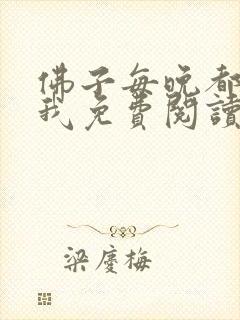 佛子每晚都
我免費閱讀
梁慶梅